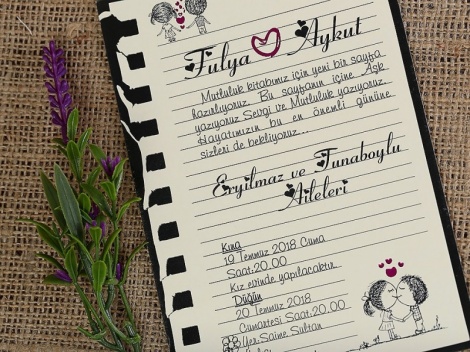 Fulya Aykut
Mutluluk kitabımız için yeni bir sayfa
hazırlıyoruz. Bu sayfanın içine Aşk
yazıyoruz Sevgi ve Mutluluk yazıyoruz...
Hayatımızın bu en önemli gününe
sizleri de bekliyoruz...
Eryilmaz ve Tunaboylu
Aileleri
Kına
19 Temmuz 2018 Cuma
Saat:20.00
Kız evinde yapılacaktır.
Düğün
20 Temmuz 2018
Cumartesi Saat:20.00
Yer:Saime Sultan